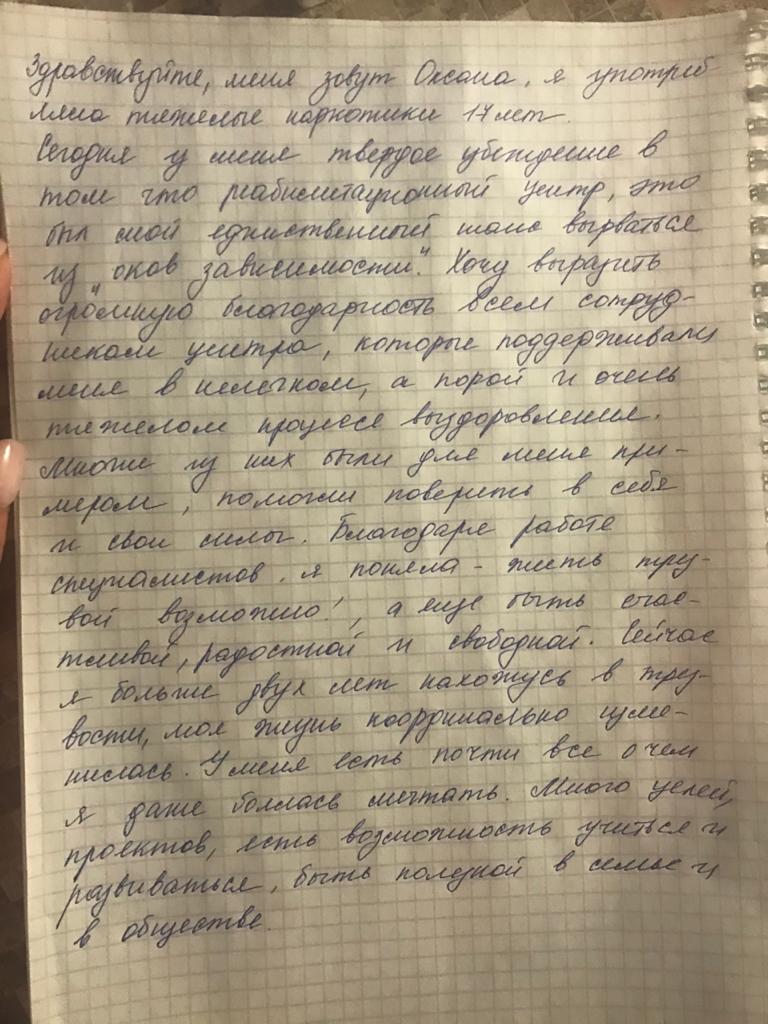 Здравствуйте, меня зовут Оксана, я употреб
ляла тяжелые наркотики 17 лет.
Сегодня у меня твердое убеждение в
том что реабилитационный центр, это
был мой единственный шанс вырваться
из "оков зависимости". Хочу выразить
огромную благодарность всем сотруд-
никам центра, которые поддерживали
меня в нелегком, а порой и очень
тяжелом процессе выздоровления.
Многие из них были для меня при-
мером, помогли поверить в себя
и свои силы. Благодаря работе
специалистов, я поняла - жить трез-
вой возможно!, а еще быть счас-
тливой, радостной и свободной. Сейчас
я больше двух лет нахожусь в трез-
вости, моя жизнь координально изме-
нилась. У меня есть почти все о чем
я даже боялась мечтать. Много целей,
проектов, есть возможность учиться и
развиваться, быть полезной в семье и
в обществе.